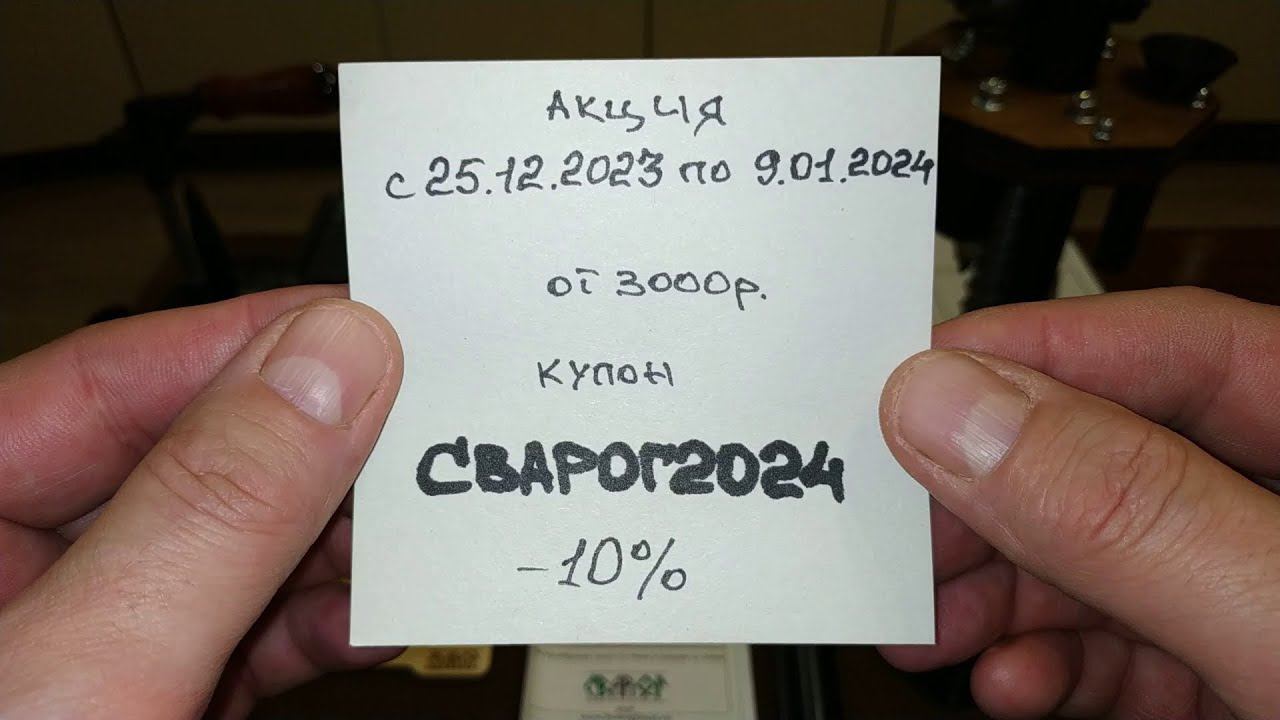 АКЦИЯ
с 25.12.2023 по 9.01.2024
от 3000р.
купон
СВАРОГ2024
-10%